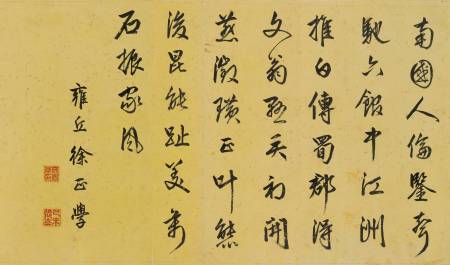 南國人倫鑒奇
馳六館中江洲
推白傅蜀郡得
文翁懸矢初開
燕徵璜正叶熊
後昆能趾美萬
石振家風
雍丘徐正學